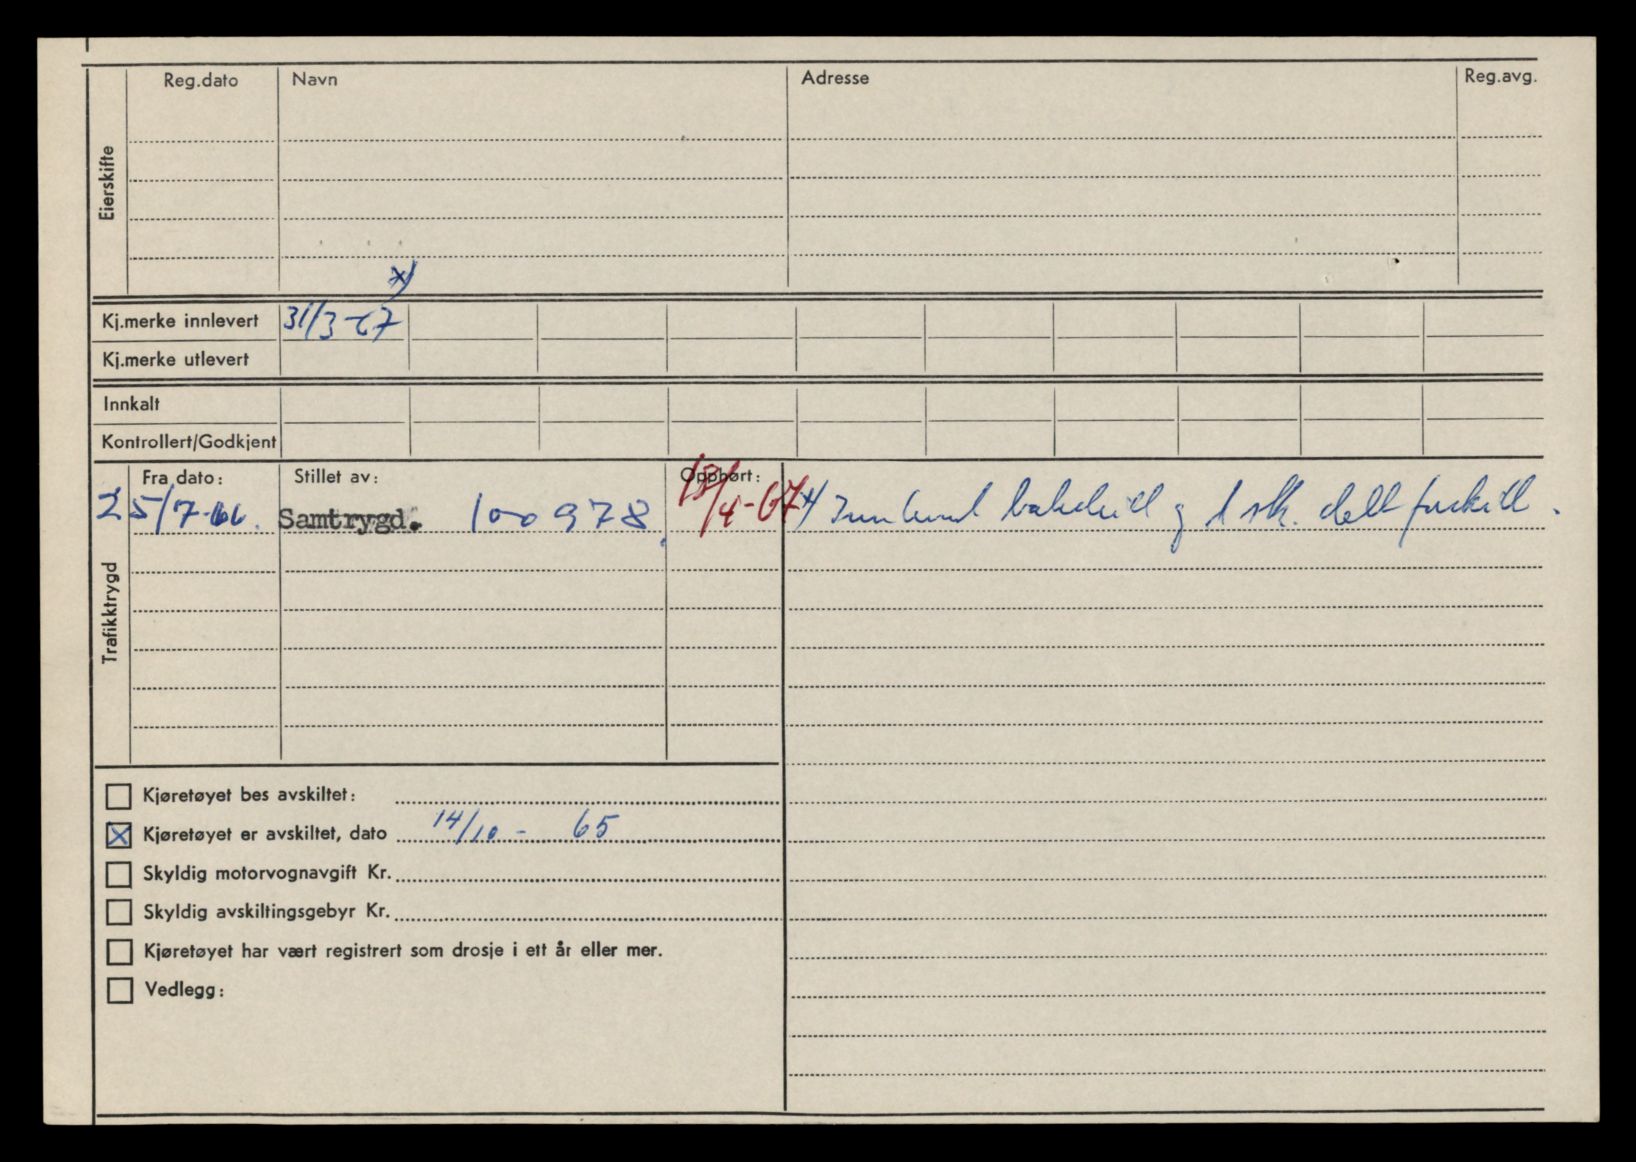 Reg.dato Navn Adresse Reg.avg.
Eierskifte
x)
Kj.merke innlevert 31/3-67
Kj.merke utlevert
Innkalt
Kontrollert/Godkjent
Trafikktrygd
Fra dato: Stillet av: Opphørt:
25/7-66. Samtrygd. 100978 13/4-67 x) bakskilt og 1 stk. delt forskilt.
Kjøretøyet bes avskiltet:
☒ Kjøretøyet er avskiltet, dato 14/10 - 65
Skyldig motorvognavgift Kr.
Skyldig avskiltingsgebyr Kr.
Kjøretøyet har vært registrert som drosje i ett år eller mer.
Vedlegg: